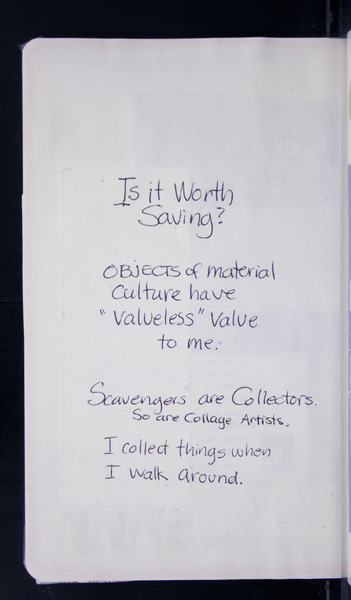 Is it Worth
Saving?
OBJECTS of material
Culture have
"Valueless" Value
to me.
Scavengers are Collectors.
So are Collage Artists.
I collect things when
I walk around.